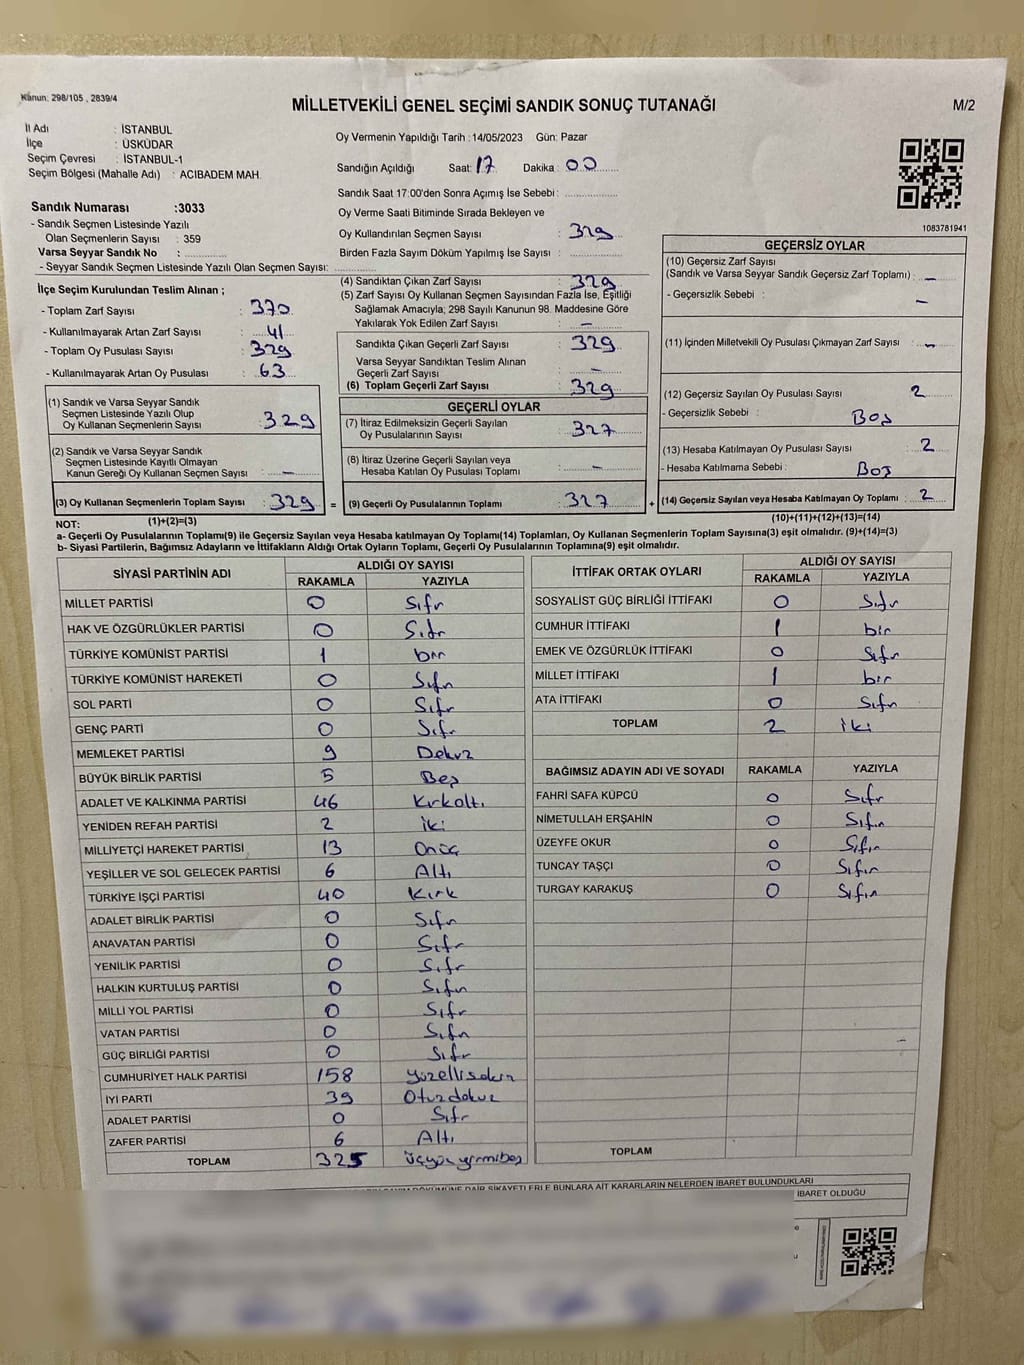 Kanun: 298/105 , 2839/4
MİLLETVEKİLİ GENEL SEÇİMİ SANDIK SONUÇ TUTANAĞI
M/2
İl Adı : İSTANBUL
İlçe : ÜSKÜDAR
Seçim Çevresi : İSTANBUL-1
Seçim Bölgesi (Mahalle Adı) : ACIBADEM MAH.
Sandık Numarası :3033
- Sandık Seçmen Listesinde Yazılı
Olan Seçmenlerin Sayısı : 359
Varsa Seyyar Sandık No :
- Seyyar Sandık Seçmen Listesinde Yazılı Olan Seçmen Sayısı:
İlçe Seçim Kurulundan Teslim Alınan ;
- Toplam Zarf Sayısı : 370
- Kullanılmayarak Artan Zarf Sayısı : 41
- Toplam Oy Pusulası Sayısı : 329
- Kullanılmayarak Artan Oy Pusulası : 63
(1) Sandık ve Varsa Seyyar Sandık
Seçmen Listesinde Yazılı Olup
Oy Kullanan Seçmenlerin Sayısı : 329
(2) Sandık ve Varsa Seyyar Sandık
Seçmen Listesinde Kayıtlı Olmayan
Kanun Gereği Oy Kullanan Seçmen Sayısı : –
(3) Oy Kullanan Seçmenlerin Toplam Sayısı : 329
Oy Vermenin Yapıldığı Tarih : 14/05/2023 Gün: Pazar
Sandığın Açıldığı Saat: 17 Dakika : 00
Sandık Saat 17:00'den Sonra Açımış İse Sebebi :
Oy Verme Saati Bitiminde Sırada Bekleyen ve
Oy Kullandırılan Seçmen Sayısı : 329
Birden Fazla Sayım Döküm Yapılmış İse Sayısı :
(4) Sandıktan Çıkan Zarf Sayısı : 329
(5) Zarf Sayısı Oy Kullanan Seçmen Sayısından Fazla İse, Eşitliği
Sağlamak Amacıyla; 298 Sayılı Kanunun 98. Maddesine Göre
Yakılarak Yok Edilen Zarf Sayısı : –
Sandıkta Çıkan Geçerli Zarf Sayısı : 329
Varsa Seyyar Sandıktan Teslim Alınan
Geçerli Zarf Sayısı : –
(6) Toplam Geçerli Zarf Sayısı : 329
GEÇERLİ OYLAR
(7) İtiraz Edilmeksizin Geçerli Sayılan
Oy Pusulalarının Sayısı : 327
(8) İtiraz Üzerine Geçerli Sayılan veya
Hesaba Katılan Oy Pusulası Toplamı : –
= (9) Geçerli Oy Pusulalarının Toplamı : 327 +
1083781941
GEÇERSİZ OYLAR
(10) Geçersiz Zarf Sayısı
(Sandık ve Varsa Seyyar Sandık Geçersiz Zarf Toplamı) : –
- Geçersizlik Sebebi : –
(11) İçinden Milletvekili Oy Pusulası Çıkmayan Zarf Sayısı : –
(12) Geçersiz Sayılan Oy Pusulası Sayısı : 2
- Geçersizlik Sebebi : Boş
(13) Hesaba Katılmayan Oy Pusulası Sayısı : 2
- Hesaba Katılmama Sebebi : Boş
(14) Geçersiz Sayılan veya Hesaba Katılmayan Oy Toplamı : 2
NOT: (1)+(2)=(3) (10)+(11)+(12)+(13)=(14)
a- Geçerli Oy Pusulalarının Toplamı(9) ile Geçersiz Sayılan veya Hesaba katılmayan Oy Toplamı(14) Toplamları, Oy Kullanan Seçmenlerin Toplam Sayısına(3) eşit olmalıdır. (9)+(14)=(3)
b- Siyasi Partilerin, Bağımsız Adayların ve İttifakların Aldığı Ortak Oyların Toplamı, Geçerli Oy Pusulalarının Toplamına(9) eşit olmalıdır.
SİYASİ PARTİNİN ADI ALDIĞI OY SAYISI
RAKAMLA YAZIYLA
MİLLET PARTİSİ 0 Sıfır
HAK VE ÖZGÜRLÜKLER PARTİSİ 0 Sıfır
TÜRKİYE KOMÜNİST PARTİSİ 1 bir
TÜRKİYE KOMÜNİST HAREKETİ 0 Sıfır
SOL PARTİ 0 Sıfır
GENÇ PARTİ 0 Sıfır
MEMLEKET PARTİSİ 9 Dokuz
BÜYÜK BİRLİK PARTİSİ 5 Beş
ADALET VE KALKINMA PARTİSİ 46 Kırkaltı
YENİDEN REFAH PARTİSİ 2 iki
MİLLİYETÇİ HAREKET PARTİSİ 13 Onüç
YEŞİLLER VE SOL GELECEK PARTİSİ 6 Altı
TÜRKİYE İŞÇİ PARTİSİ 40 Kırk
ADALET BİRLİK PARTİSİ 0 Sıfır
ANAVATAN PARTİSİ 0 Sıfır
YENİLİK PARTİSİ 0 Sıfır
HALKIN KURTULUŞ PARTİSİ 0 Sıfır
MİLLİ YOL PARTİSİ 0 Sıfır
VATAN PARTİSİ 0 Sıfır
GÜÇ BİRLİĞİ PARTİSİ 0 Sıfır
CUMHURİYET HALK PARTİSİ 158 yüzellisekiz
İYİ PARTİ 39 Otuzdokuz
ADALET PARTİSİ 0 Sıfır
ZAFER PARTİSİ 6 Altı
TOPLAM 325 üçyüzyirmibeş
İTTİFAK ORTAK OYLARI ALDIĞI OY SAYISI
RAKAMLA YAZIYLA
SOSYALİST GÜÇ BİRLİĞİ İTTİFAKI 0 Sıfır
CUMHUR İTTİFAKI 1 bir
EMEK VE ÖZGÜRLÜK İTTİFAKI 0 Sıfır
MİLLET İTTİFAKI 1 bir
ATA İTTİFAKI 0 Sıfır
TOPLAM 2 iki
BAĞIMSIZ ADAYIN ADI VE SOYADI RAKAMLA YAZIYLA
FAHRİ SAFA KÜPCÜ 0 Sıfır
NİMETULLAH ERŞAHİN 0 Sıfır
ÜZEYFE OKUR 0 Sıfır
TUNCAY TAŞÇI 0 Sıfır
TURGAY KARAKUŞ 0 Sıfır
TOPLAM
DÖKÜMÜNE DAİR ŞİKAYETLERLE BUNLARA AİT KARARLARIN NELERDEN İBARET BULUNDUKLARI
İBARET OLDUĞU